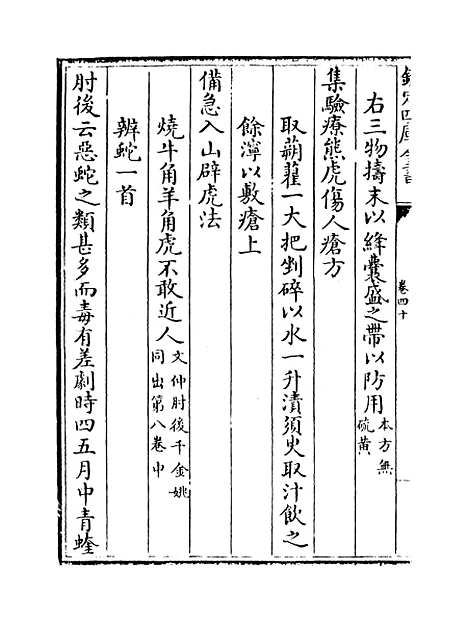 欽定四庫全書
卷四十
右三物擣末以絳囊盛之帶以防用本方無硫黄
集驗療熊虎傷人瘡方
取蒴藋一大把剉碎以水一升漬須臾取汁飲之
餘滓以敷瘡上
備急入山辟虎法
燒牛角羊角虎不敢近人文仲肘後千金姚同出第八卷中
辨蛇一首
肘後云惡蛇之類甚多而毒有差劇時四五月中青蝰